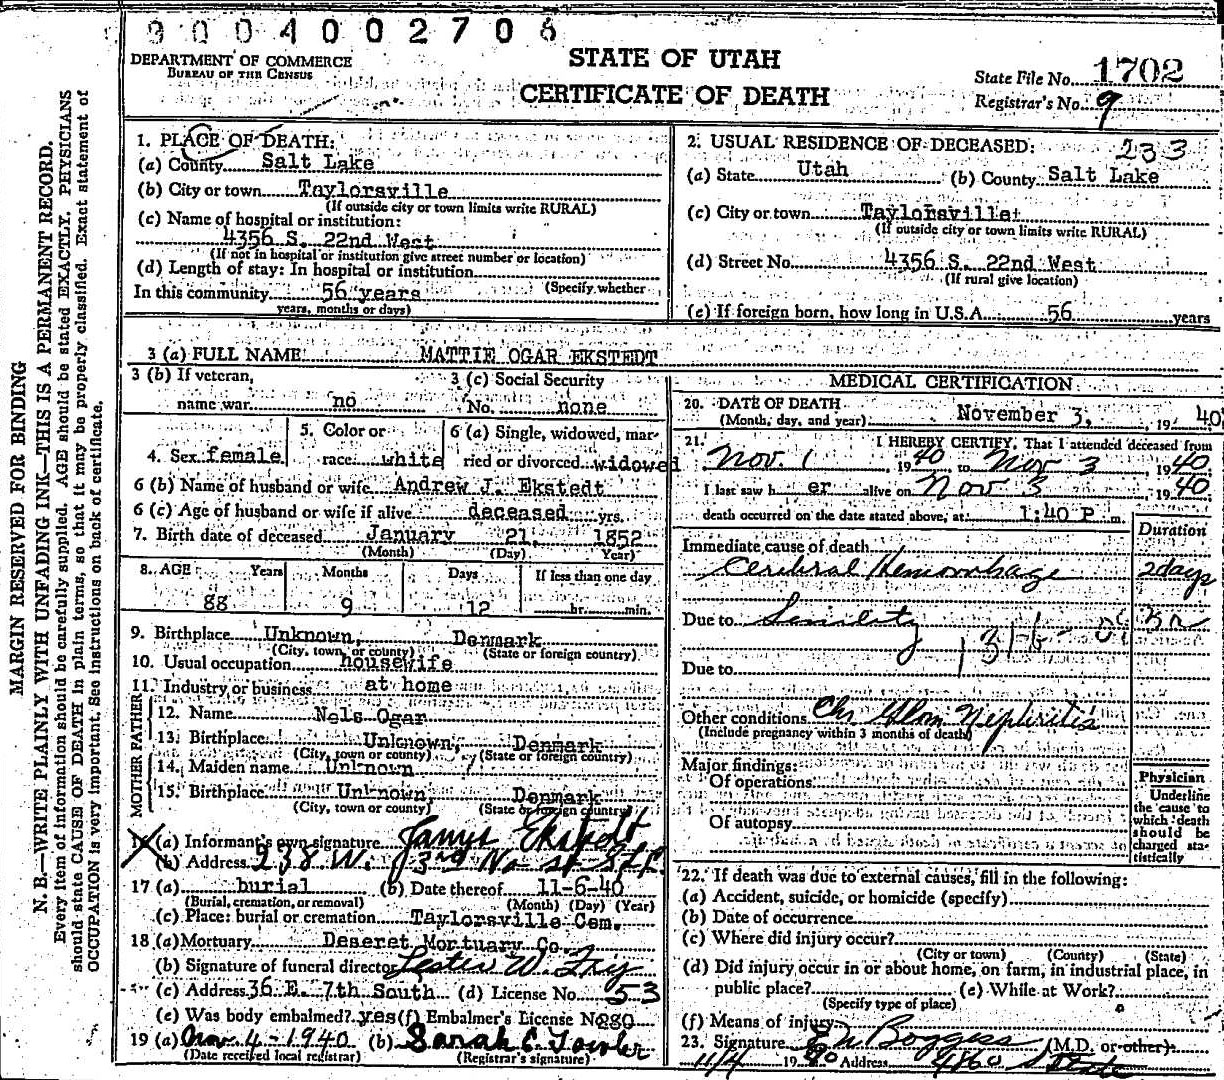 9004002706
DEPARTMENT OF COMMERCE
BUREAU OF THE CENSUS
STATE OF UTAH
CERTIFICATE OF DEATH
State File No. 1702
Registrar's No. 9
MARGIN RESERVED FOR BINDING
N. B.—WRITE PLAINLY WITH UNFADING INK—THIS IS A PERMANENT RECORD.
Every item of information should be carefully supplied. AGE should be stated EXACTLY. PHYSICIANS
should state CAUSE OF DEATH in plain terms, so that it may be properly classified. Exact statement of
OCCUPATION is very important. See instructions on back of certificate.
1. PLACE OF DEATH:
(a) County Salt Lake
(b) City or town Taylorsville
(If outside city or town limits write RURAL)
(c) Name of hospital or institution:
4356 S. 22nd West
(If not in hospital or institution give street number or location)
(d) Length of stay: In hospital or institution
(Specify whether
In this community 56 years
years, months or days)
2. USUAL RESIDENCE OF DECEASED: 233
(a) State Utah (b) County Salt Lake
(c) City or town Taylorsville
(If outside city or town limits write RURAL)
(d) Street No. 4356 S. 22nd West
(If rural give location)
(e) If foreign born, how long in U.S.A. 56 years
3 (a) FULL NAME MATTIE OGAR EKSTEDT
3 (b) If veteran,
name war no
3 (c) Social Security
No. none
4. Sex female
5. Color or
race white
6 (a) Single, widowed, mar-
ried or divorced widowed
6 (b) Name of husband or wife Andrew J. Ekstedt
6 (c) Age of husband or wife if alive deceased yrs.
7. Birth date of deceased January 21, 1852
(Month) (Day) Year)
8. AGE Years Months Days If less than one day
88 9 12 hr. min.
9. Birthplace Unknown, Denmark
(City, town, or county) (State or foreign country)
10. Usual occupation housewife
11. Industry or business at home
FATHER
12. Name Nels Ogar
13. Birthplace Unknown, Denmark
(City, town or county) (State or foreign country)
MOTHER
14. Maiden name Unknown
15. Birthplace Unknown, Denmark
(City, town or county) (State or foreign country)
(a) Informant's own signature James Ekstedt
(b) Address 238 W. 3rd No St S.L.C.
17 (a) burial (b) Date thereof 11-6-40
(Burial, cremation, or removal) (Month) (Day) (Year)
(c) Place: burial or cremation Taylorsville Cem.
18 (a) Mortuary Deseret Mortuary Co.
(b) Signature of funeral director Lester W. Fry
(c) Address 36 E. 7th South (d) License No. 53
(e) Was body embalmed? yes (f) Embalmer's License No 280
19 (a) Nov. 4-1940 (b) Sarah E Fowler
(Date received local registrar) (Registrar's signature)
MEDICAL CERTIFICATION
20. DATE OF DEATH
(Month, day, and year) November 3, 19 40
21. I HEREBY CERTIFY, That I attended deceased from
Nov. 1, 1940 to Nov 3 1940
I last saw h er alive on Nov 3, 1940
death occurred on the date stated above, at 1:40 P m.
Duration
Immediate cause of death
Cerebral Hemorrhage 2 days
Due to Senility
Due to
Other conditions Chr Glom Nephritis
(Include pregnancy within 3 months of death)
Major findings:
Of operations
Of autopsy
Physician
Underline
the cause to
which death
should be
charged sta-
tistically
22. If death was due to external causes, fill in the following:
(a) Accident, suicide, or homicide (specify)
(b) Date of occurrence
(c) Where did injury occur?
(City or town) (County) (State)
(d) Did injury occur in or about home, on farm, in industrial place, in
public place? (e) While at Work?
(Specify type of place)
(f) Means of injury
23. Signature Boggess (M.D. or other)
11/4 1940 Address State